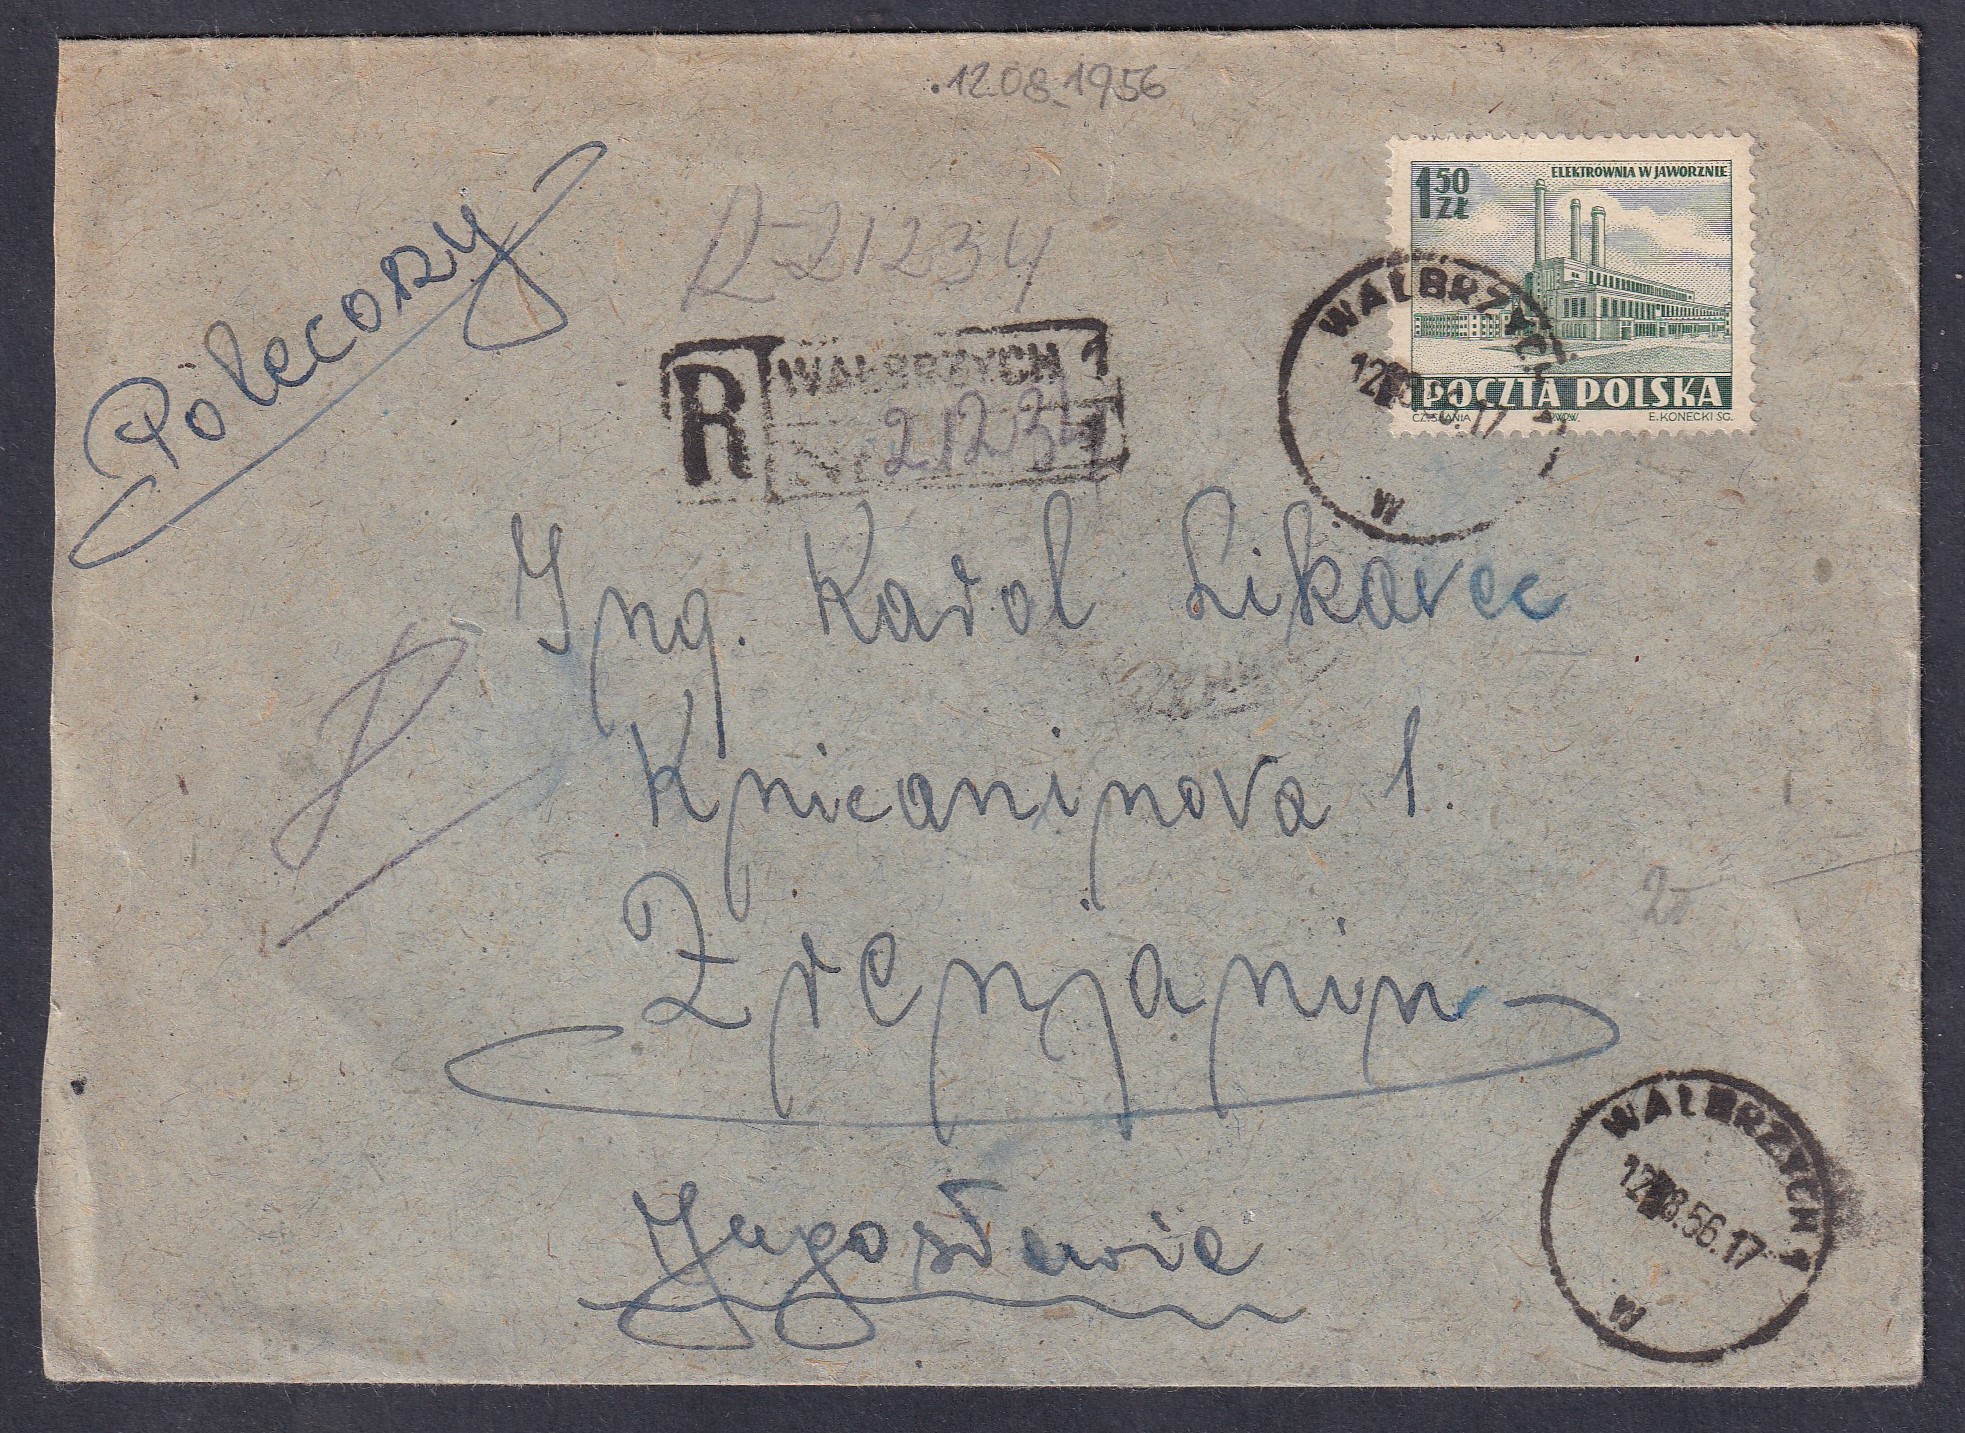 .12.08.1956
Polecony
R-21234
R WAŁBRZYCH 1
Nr 21234
1 50 ZŁ
ELEKTROWNIA W JAWORZNIE
POCZTA POLSKA
CZ.SŁANIA P.W.P.W. E.KONECKI SC.
WAŁBRZYCH 1
12.08.56.17
w
Ing. Karol Likavec
Knicaninova 1.
Zrenjanin
20
Jugosławie
WAŁBRZYCH 1
12.08.56.17
w